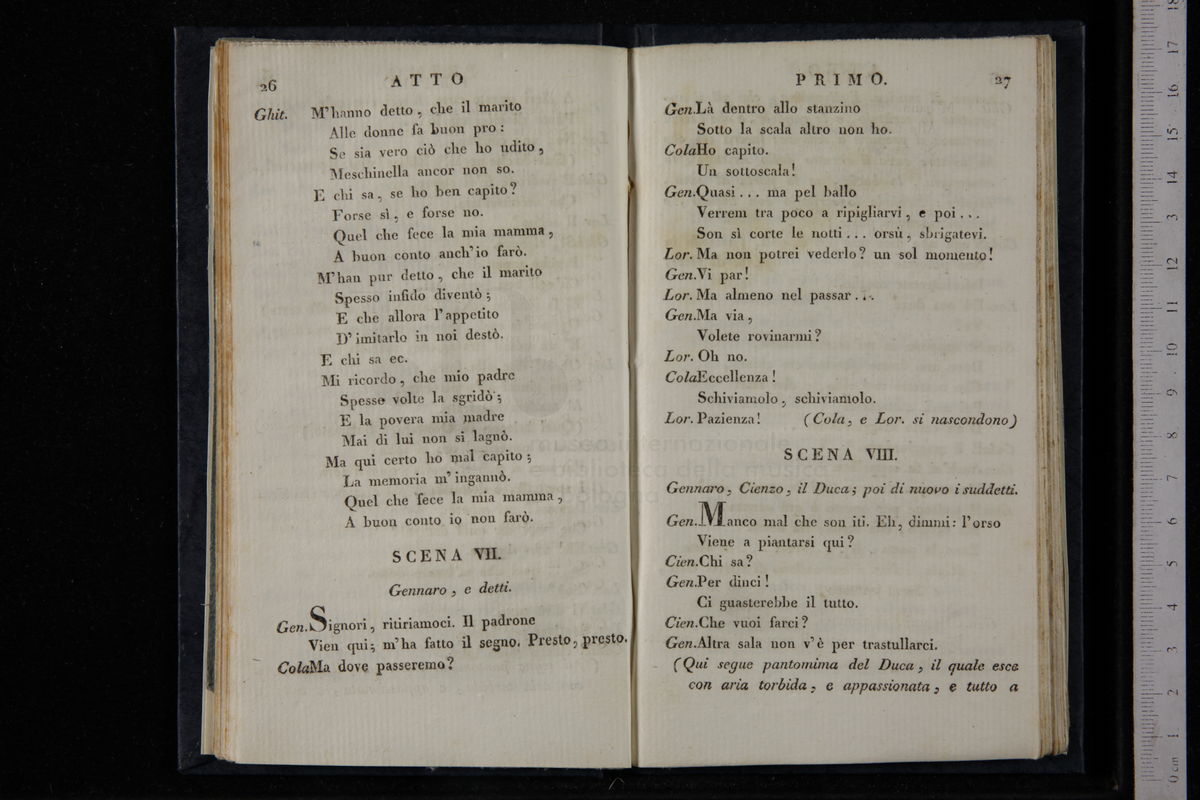 26
ATTO
Ghit. M'hanno detto, che il marito
Alle donne fa buon pro:
Se sia vero ciò che ho udito,
Meschinella ancor non so.
E chi sa, se ho ben capito?
Forse sì, e forse no.
Quel che fece la mia mamma,
A buon conto anch'io farò.
M'han pur detto, che il marito
Spesso infido diventò;
E che allora l'appetito
D'imitarlo in noi destò.
E chi sa ec.
Mi ricordo, che mio padre
Spesse volte la sgridò;
E la povera mia madre
Mai di lui non si lagnò.
Ma qui certo ho mal capito;
La memoria m'ingannò.
Quel che fece la mia mamma,
A buon conto io non farò.
SCENA VII.
Gennaro, e detti.
Gen. Signori, ritiriamoci. Il padrone
Vien qui; m'ha fatto il segno. Presto, presto.
Cola Ma dove passeremo?
PRIMO.
27
Gen. Là dentro allo stanzino
Sotto la scala altro non ho.
Cola Ho capito.
Un sottoscala!
Gen. Quasi... ma pel ballo
Verrem tra poco a ripigliarvi, e poi...
Son sì corte le notti... orsù, sbrigatevi.
Lor. Ma non potrei vederlo? un sol momento!
Gen. Vi par!
Lor. Ma almeno nel passar...
Gen. Ma via,
Volete rovinarmi?
Lor. Oh no.
Cola Eccellenza!
Schiviamolo, schiviamolo.
Lor. Pazienza! (Cola, e Lor. si nascondono)
SCENA VIII.
Gennaro, Cienzo, il Duca; poi di nuovo i suddetti.
Gen. Manco mal che son iti. Eh, dimmi: l'orso
Viene a piantarsi qui?
Cien. Chi sa?
Gen. Per dinci!
Ci guasterebbe il tutto.
Cien. Che vuoi farci?
Gen. Altra sala non v'è per trastullarci.
(Qui segue pantomima del Duca, il quale esce
con aria torbida, e appassionata, e tutto a
museo internazionale
e biblioteca della musica
0 cm 1 2 3 4 5 6 7 8 9 10 11 12 13 14 15 16 17 18